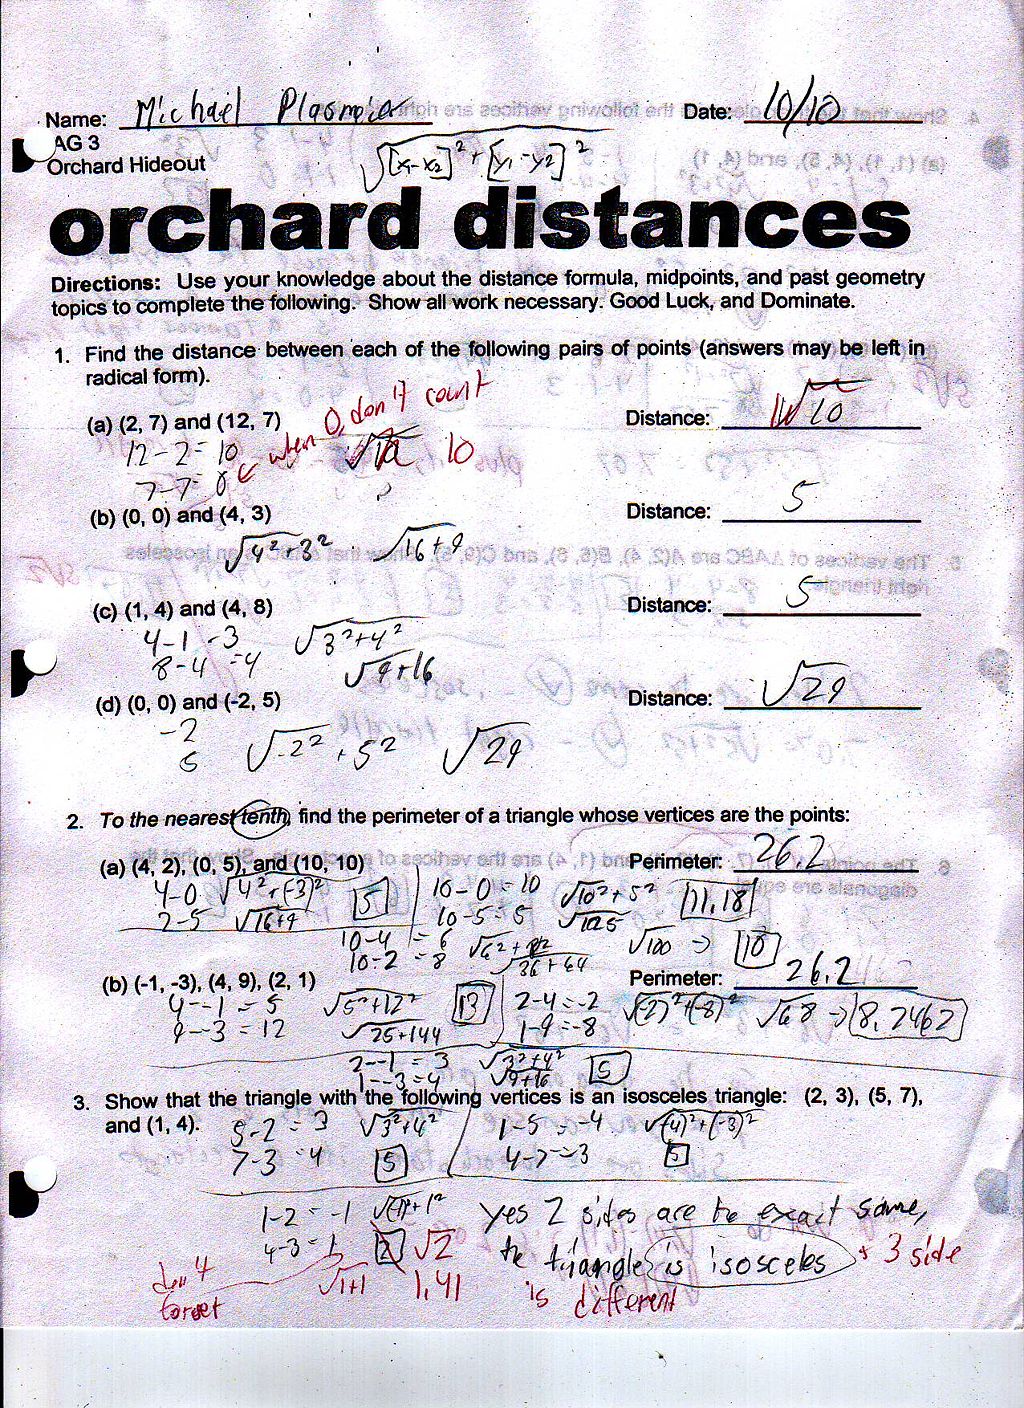 Name: Michael Date: 10/10
AG 3
Orchard Hideout √[x₁-x₂]²+[y₁-y2]²
orchard distances
Directions: Use your knowledge about the distance formula, midpoints, and past geometry
topics to complete the following. Show all work necessary. Good Luck, and Dominate.
1. Find the distance between each of the following pairs of points (answers may be left in
radical form).
(a) (2, 7) and (12, 7) Distance: √10
when 0, don't count
12-2= 10 10
7-7= 0
(b) (0, 0) and (4, 3) Distance: 5
√4²+3² √16+9
(c) (1, 4) and (4, 8) Distance: 5
4-1 =3 √3²+4²
8-4 =4 √9+16
(d) (0, 0) and (-2, 5) Distance: √29
-2
5 √-2²+5² √29
2. To the nearest tenth, find the perimeter of a triangle whose vertices are the points:
(a) (4, 2), (0, 5), and (10, 10) Perimeter: 26.2
4-0 √4²+(-3)² 5 10-0=10 √10²+5² 11.18
2-5 √16+9 10-5=5 √125
10-4 =6 √100 → 10
10-2 =8 √36+64
(b) (-1, -3), (4, 9), (2, 1) Perimeter: 26.2
4--1=5 √5²+12² 13 2-4=-2 √(-2)²+(-8)² √68 → 8.2462
9--3=12 √25+144 1-9=-8
2--1= 3 √3²+4²
1--3=4 √9+16 5
3. Show that the triangle with the following vertices is an isosceles triangle: (2, 3), (5, 7),
and (1, 4). 5-2 = 3 √3²+4² 1-5=-4 √(-4)²+(-3)²
7-3 =4 5 4-7=-3 5
1-2 = -1 yes 2 sides are the exact same,
4-3=1 2 √2 the triangle is isosceles + 3 side
don't √1+1 1.41 is different
forget